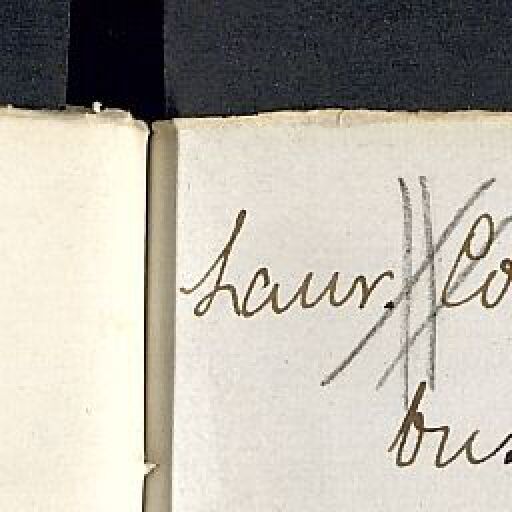 Laur. Co
bus